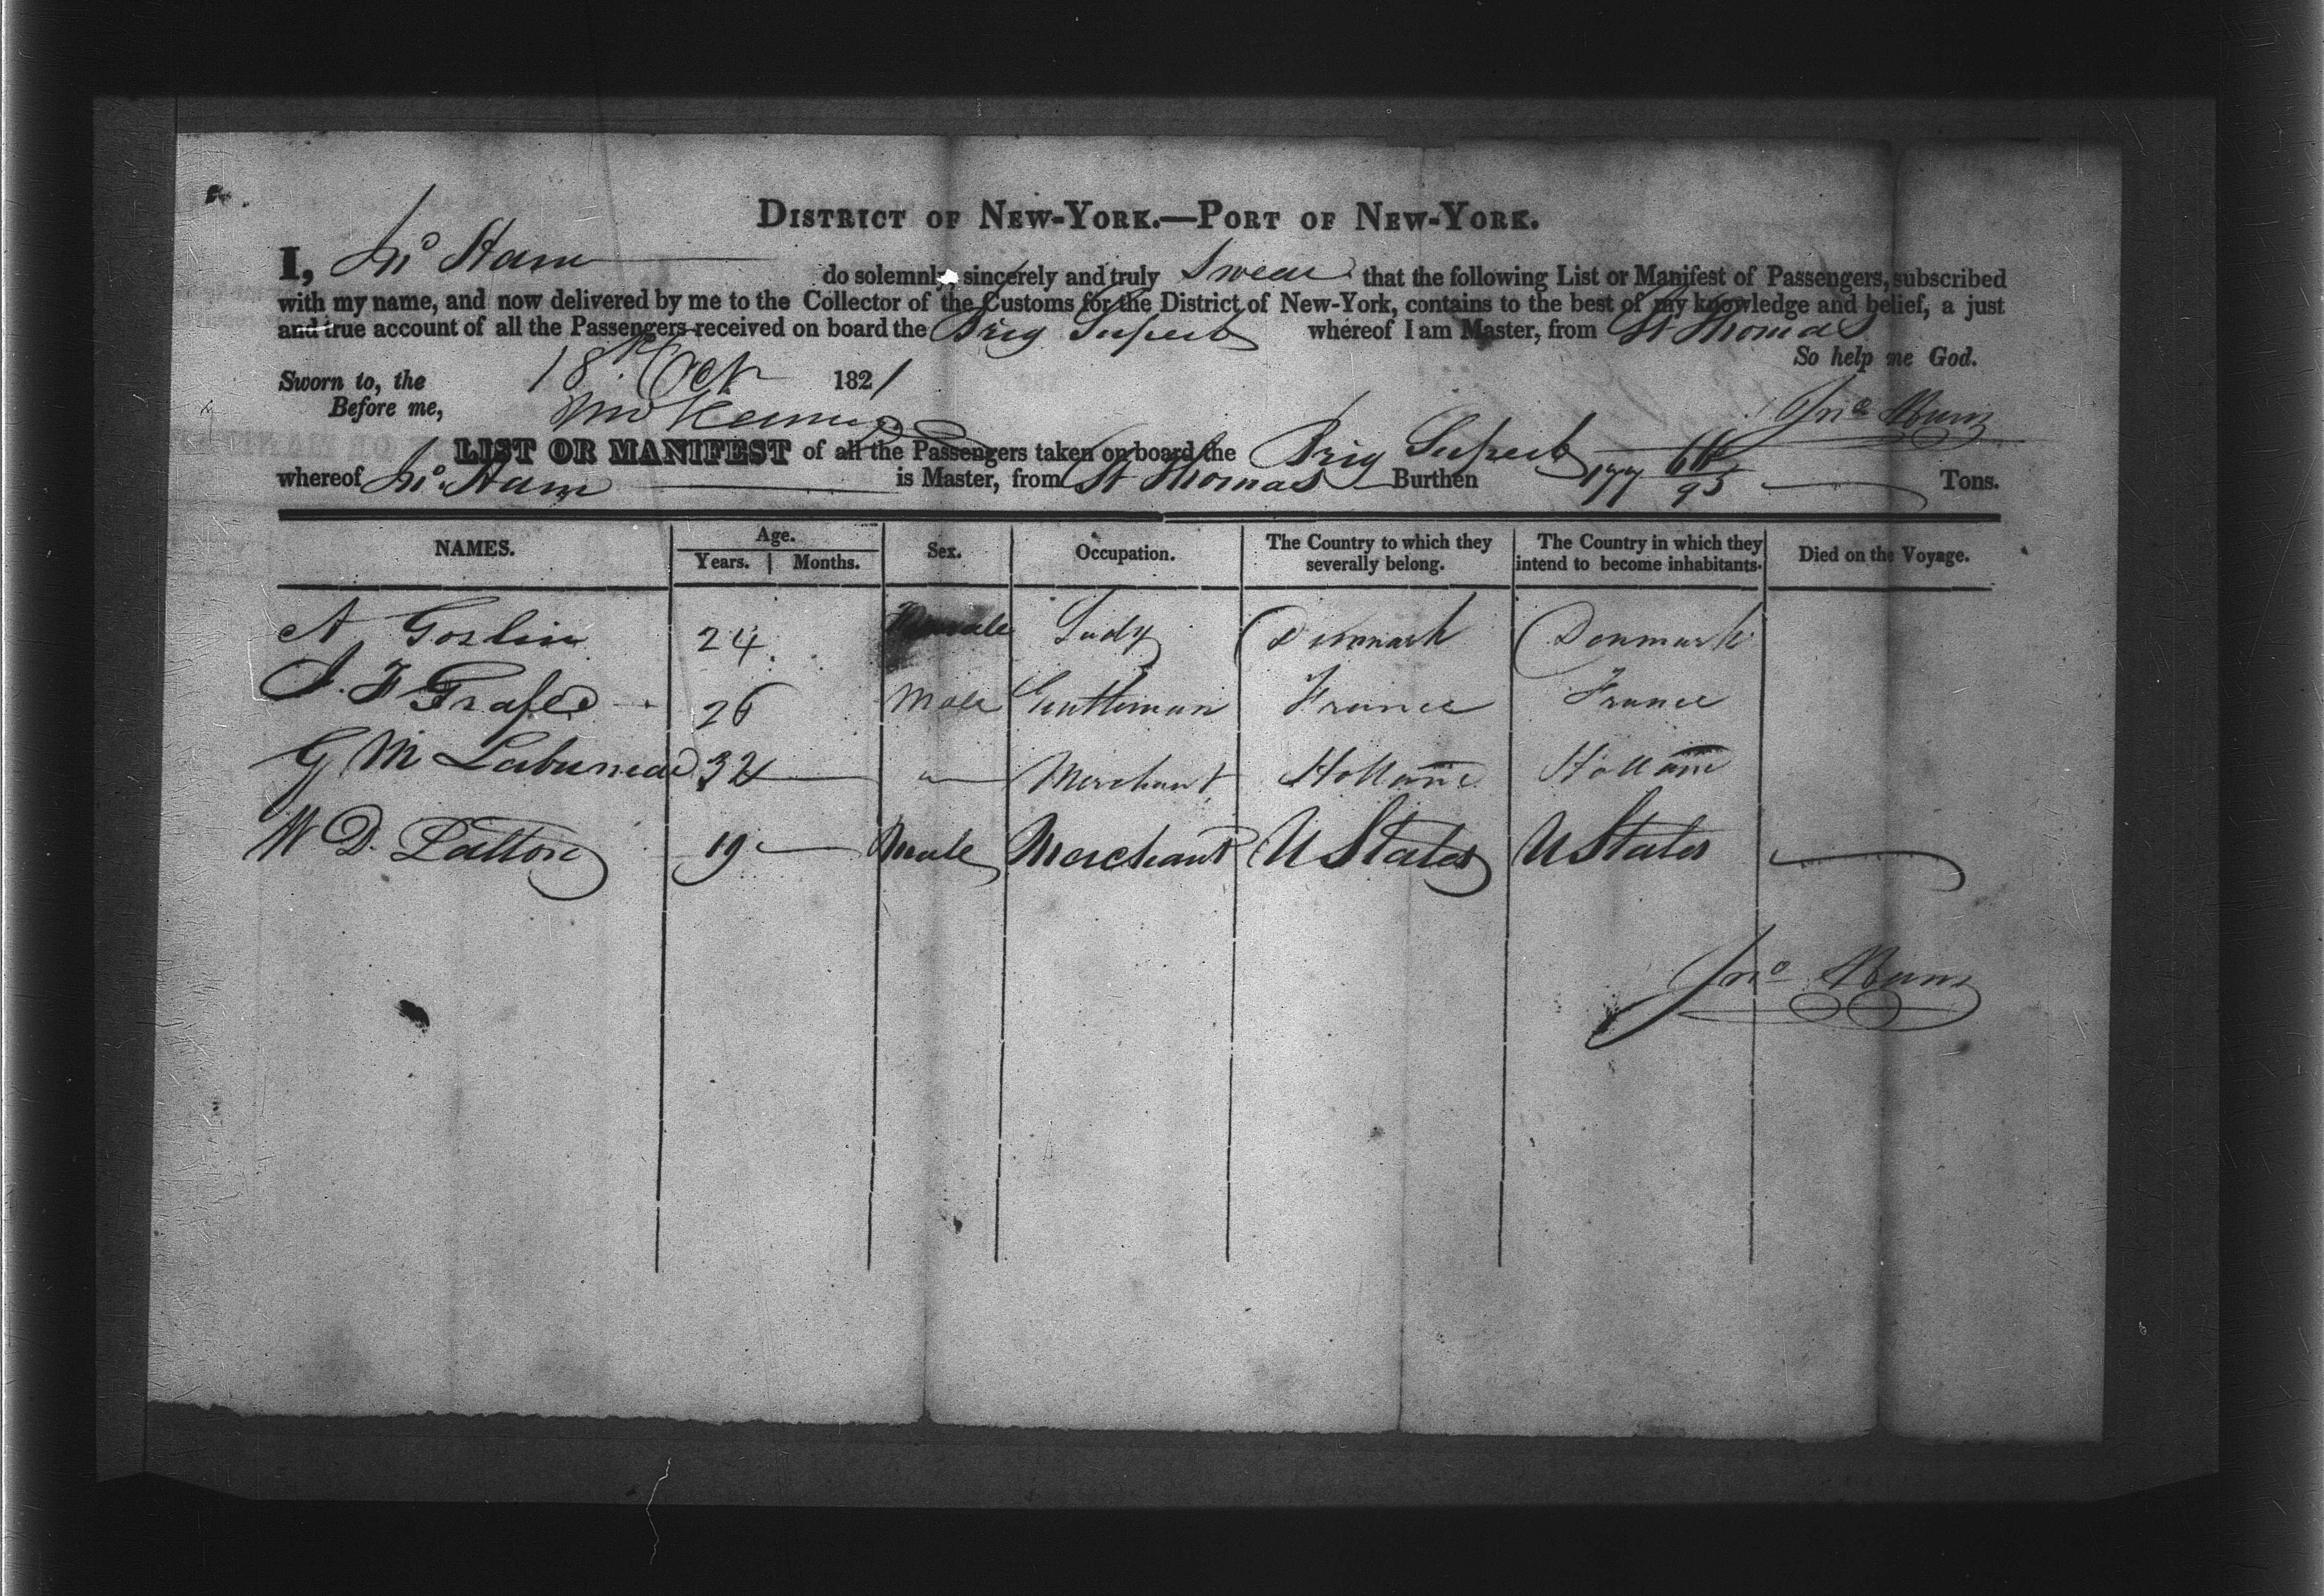 DISTRICT OF NEW-YORK.—PORT OF NEW-YORK.
I, Jno Ham do solemnly, sincerely and truly Swear that the following List or Manifest of Passengers, subscribed
with my name, and now delivered by me to the Collector of the Customs for the District of New-York, contains to the best of my knowledge and belief, a just
and true account of all the Passengers received on board the Brig Superb whereof I am Master, from St Thomas
So help me God.
Sworn to, the 18th Oct 1821
Before me, Jno Ham
LIST OR MANIFEST of all the Passengers taken on board the Brig Superb
whereof Jno Ham is Master, from St Thomas Burthen 177 /95 Tons.
NAMES. Age. Years. Months. Sex. Occupation. The Country to which they severally belong. The Country in which they intend to become inhabitants. Died on the Voyage.
A Goslin 24 Female Lady Denmark Denmark
J. F 26 Male Gentleman France France
G M 32 " Merchant Holland Holland
W D. Patton 19 Male Merchant U States U States
Jno Ham